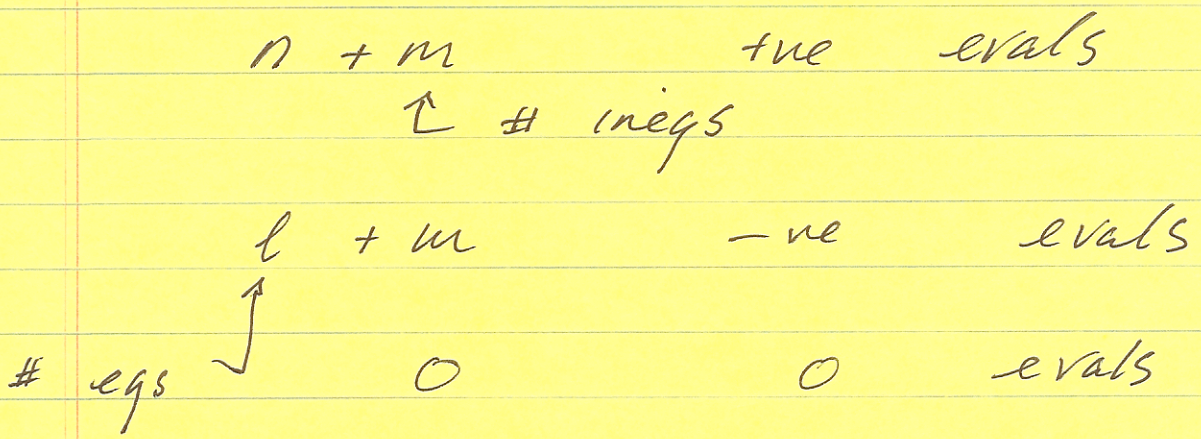 n + m +ve evals
# ineqs
l + m -ve evals
# eqs 0 0 evals